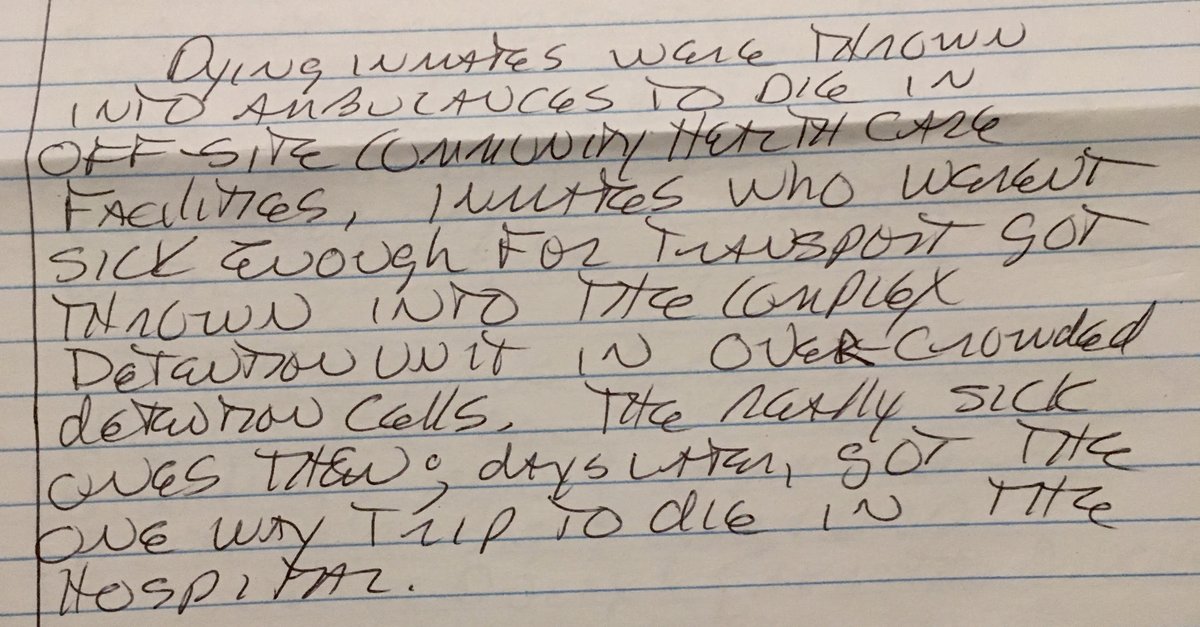 Dying inmates were thrown
into ambulances to die in
off-site community health care
facilities, inmates who werent
sick enough for transport got
thrown into the complex
detention unit in over-crowded
detention cells. The really sick
ones then; days later, got the
one way trip to die in the
hospital.